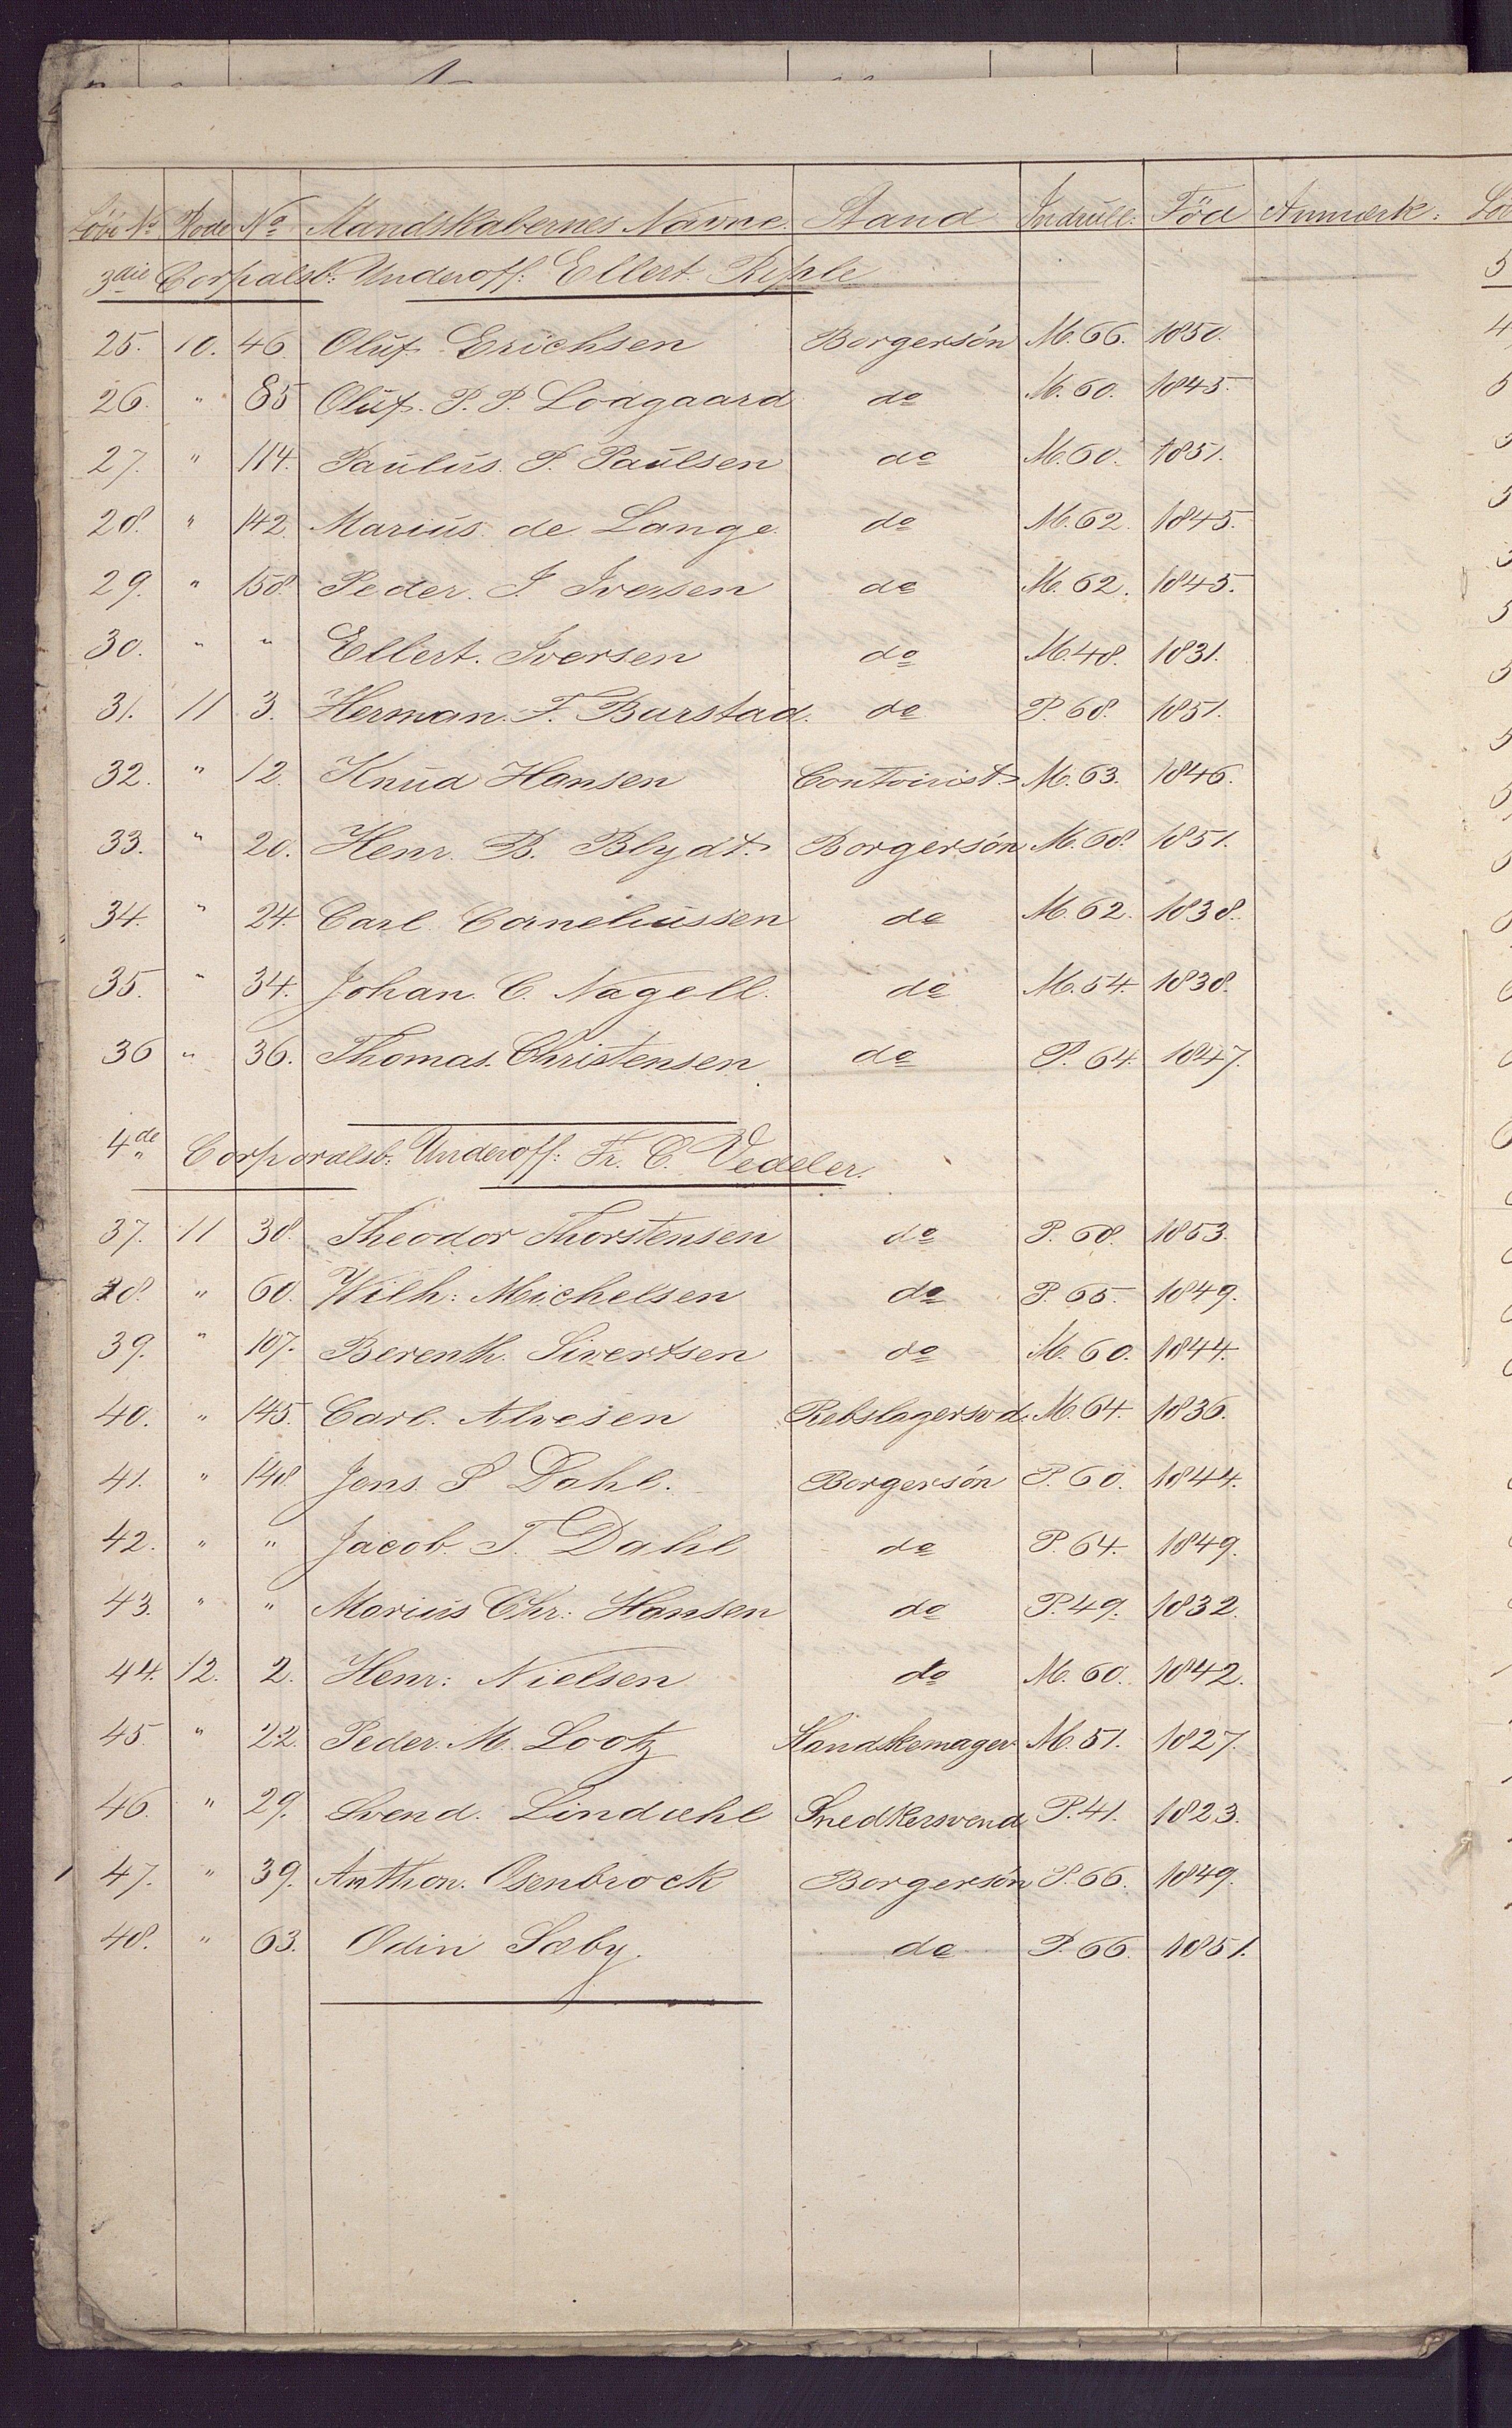 Löbe No Rode No Mandskabernes Navne. Stand Indrull: Föd Anmærk:
3die Corpalsb: Underoff: Ellert Riple
25. 10. 46. Oluf Erichsen Borgersön M. 66. 1850.
26. " 85 Oluf. P. P. Lodgaard do M. 60. 1845.
27. " 114. Paulus. P. Paulsen do M. 60. 1851.
28. " 142. Marius de Lange. do M. 62. 1845.
29. " 158. Peder. J. Iversen do M. 62. 1845.
30. " " Ellert. Iversen do M. 48. 1831.
31. 11 3. Herman. F. Barstad. do P. 68. 1851.
32. " 12. Knud Hansen Contoirist. M. 63. 1846.
33. " 20. Henr. B. Blydt. Borgersön M. 68. 1851.
34. " 24. Carl Corneliussen do M. 62. 1838.
35. " 34. Johan. C. Nagell. do M. 54. 1838.
36 " 36. Thomas. Christensen do P. 64. 1847.
4de Corporalsb: Underoff: Fr. C. Vedeler.
37. 11 38. Theodor Thorstensen do P. 68. 1853.
38. " 60. Wilh: Michelsen do P. 65. 1849.
39. " 107. Berenth. Sivertsen do M. 60. 1844.
40. " 145. Carl. Alvesen Rebslagersvd. M. 64. 1836.
41. " 148 Jens. S Dahl. Borgersön P. 60. 1844.
42. " " Jacob. T. Dahl do P. 64. 1849.
43. " " Marius Chr: Hansen do P. 49. 1832.
44. 12. 2. Henr: Nielsen do M. 60. 1842.
45. " 22. Peder. M. Lootz Handskemager M. 51. 1827.
46. " 29. Svend. Lindæhl Snedkersvend P. 41. 1823.
47. " 39. Anthon. Osenbrock Borgersön P. 66. 1849.
48. " 63. Odin Sæby. do P. 66. 1851.